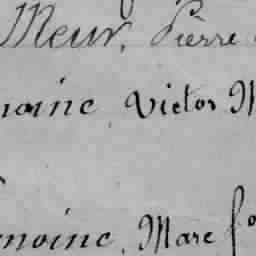 Meur, Pierre
moine, Victor M
moine, Marc fo